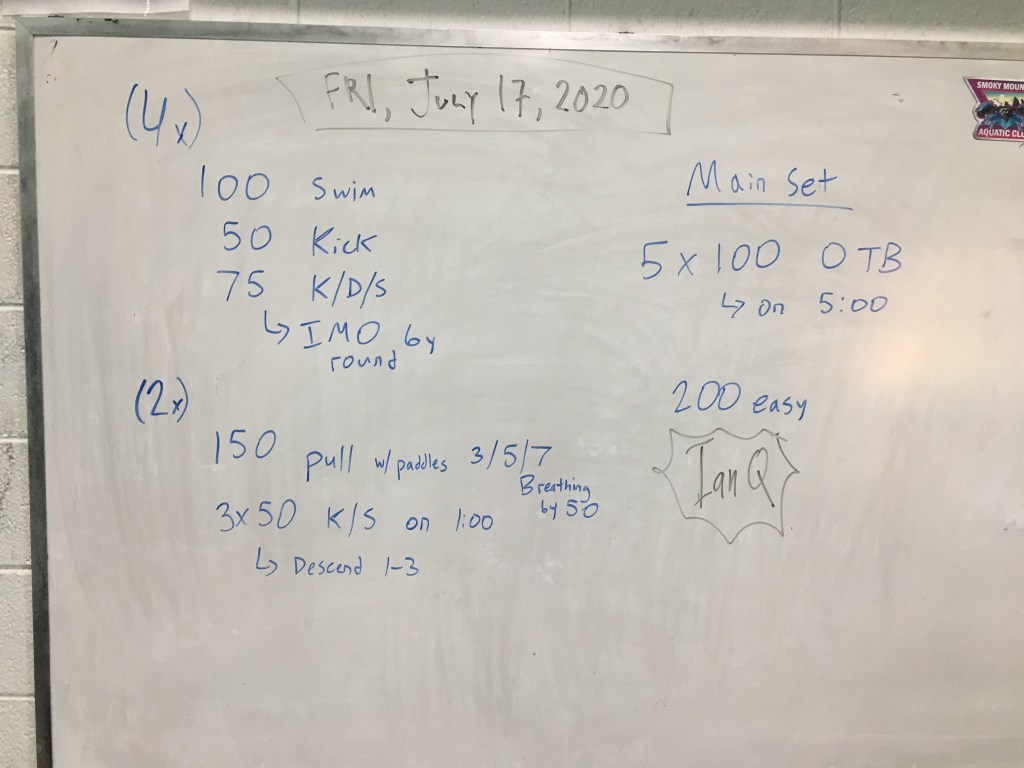 FRI, July 17, 2020
(4x)
100 Swim
50 Kick
75 K/D/S
↳ IMO by
round
(2x)
150 pull w/ paddles 3/5/7
Breathing
by 50
3x50 K/S on 1:00
↳ Descend 1-3
Main Set
5 x 100 OTB
↳ on 5:00
200 easy
Ian Q
SMOKY MOUN
AQUATIC CLU